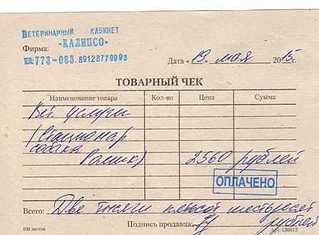 ВЕТЕРИНАРНЫЙ КАБИНЕТ
Фирма «КАЛИПСО»
773-083, 89128770993
Дата «13 мая 2015г.
ТОВАРНЫЙ ЧЕК
Наименование товара Кол-во Цена Сумма
Вет услуги
(Стационар
собака
2560 рублей
ОПЛАЧЕНО
Всего: Две тысячи пятьсот шестьдесят
Подпись продавца рублей
100 листов